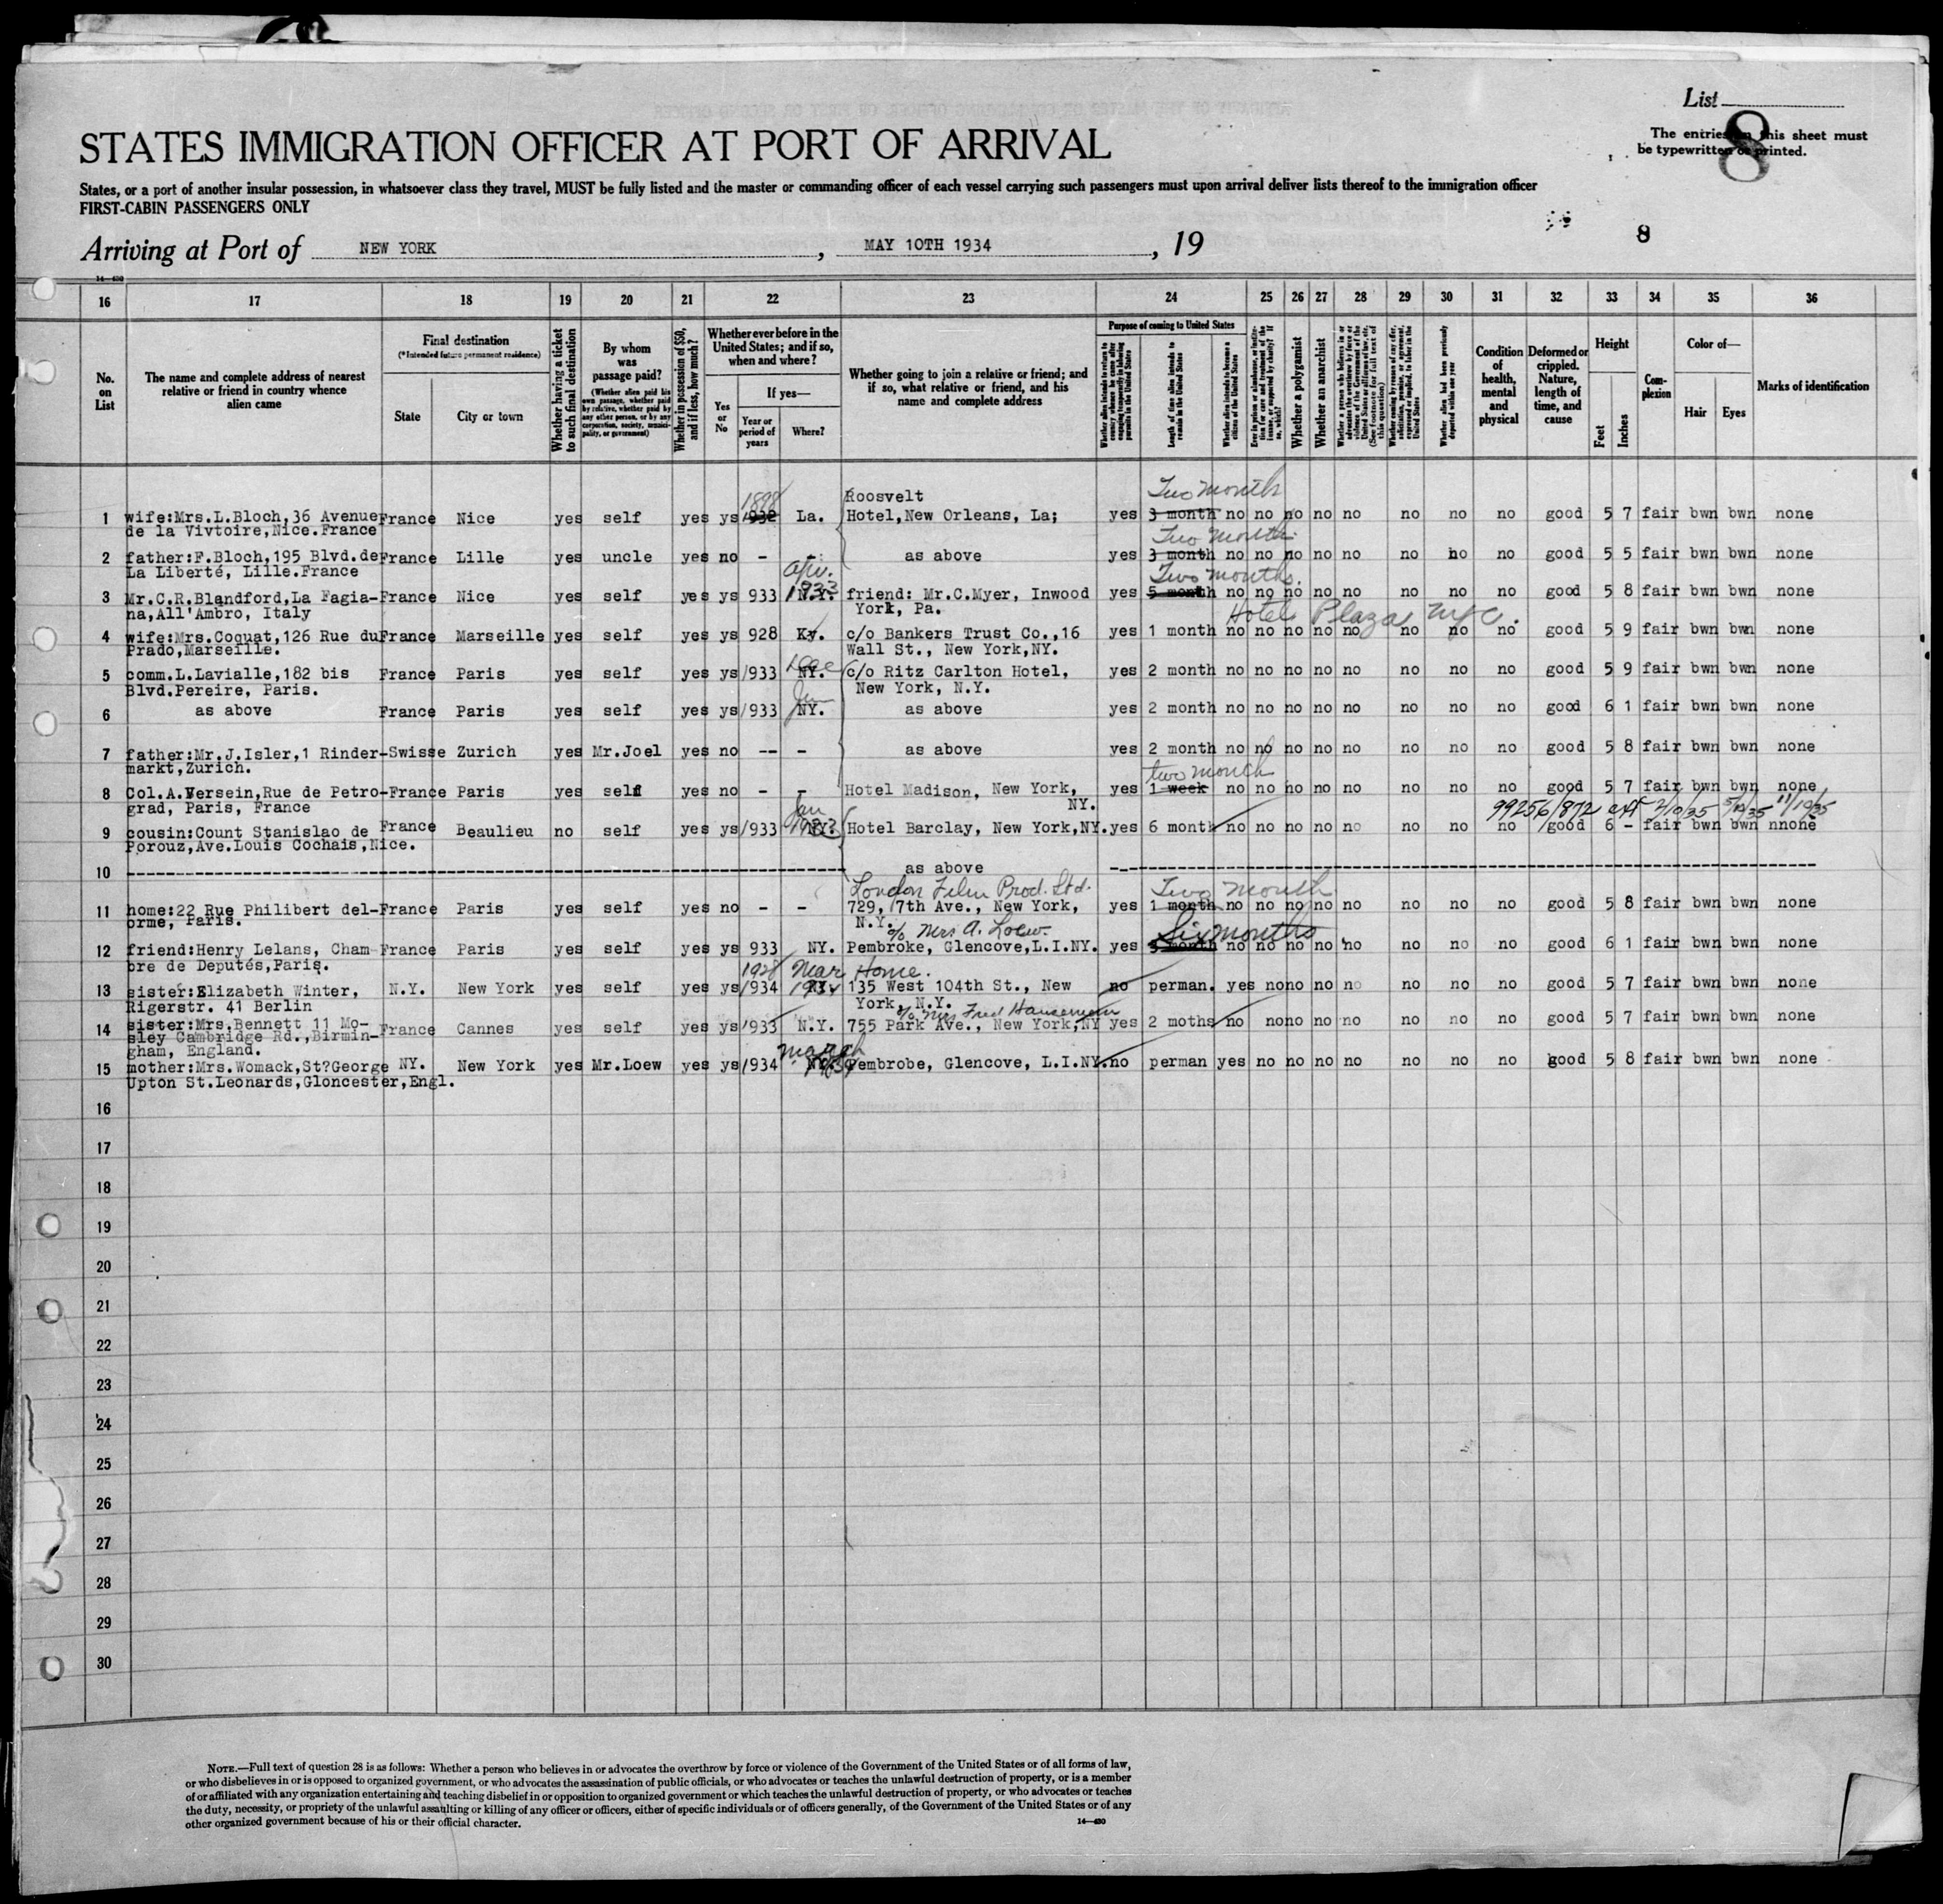 List
8
The entries on this sheet must
be typewritten or printed.
STATES IMMIGRATION OFFICER AT PORT OF ARRIVAL
States, or a port of another insular possession, in whatsoever class they travel, MUST be fully listed and the master or commanding officer of each vessel carrying such passengers must upon arrival deliver lists thereof to the immigration officer
FIRST-CABIN PASSENGERS ONLY
8
Arriving at Port of NEW YORK, MAY 10TH 1934, 19
14-430
16 17 18 19 20 21 22 23 24 25 26 27 28 29 30 31 32 33 34 35 36
No. on List
The name and complete address of nearest relative or friend in country whence alien came
Final destination
(*Intended future permanent residence)
State
City or town
Whether having a ticket to such final destination
By whom was passage paid?
(Whether alien paid his own passage, whether paid by relative, whether paid by any other person, or by any corporation, society, municipality, or government)
Whether in possession of $50, and if less, how much?
Whether ever before in the United States; and if so, when and where?
Yes or No
If yes—
Year or period of years
Where?
Whether going to join a relative or friend; and if so, what relative or friend, and his name and complete address
Purpose of coming to United States
Whether alien intends to return to country whence he came after engaging temporarily in laboring pursuits in the United States
Length of time alien intends to remain in the United States
Whether alien intends to become a citizen of the United States
Ever in prison or almshouse, or institution for care and treatment of the insane, or supported by charity? If so, which?
Whether a polygamist
Whether an anarchist
Whether a person who believes in or advocates the overthrow by force or violence of the Government of the United States or all forms of law, etc. (See footnote for full text of this question)
Whether coming by reason of any offer, solicitation, promise, or agreement, expressed or implied, to labor in the United States
Whether alien had been previously deported within one year
Condition of health, mental and physical
Deformed or crippled. Nature, length of time, and cause
Height
Feet
Inches
Complexion
Color of—
Hair
Eyes
Marks of identification
1898 Roosvelt Two month
1 wife:Mrs.L.Bloch,36 Avenue France Nice yes self yes ys 1932 La. Hotel,New Orleans, La; yes 3 month no no no no no no no no good 5 7 fair bwn bwn none
de la Vivtoire,Nice.France Two months
2 father:F.Bloch,195 Blvd.de France Lille yes uncle yes no - - as above yes 3 month no no no no no no no no good 5 5 fair bwn bwn none
La Liberté, Lille.France Two months.
3 Mr.C.R.Blandford,La Fagia- France Nice yes self yes ys 933 N.Y. 1933 friend: Mr.C.Myer, Inwood yes 5 month no no no no no no no no good 5 8 fair bwn bwn none
na,All'Ambro, Italy York, Pa. Hotel Plaza NYC.
4 wife:Mrs.Coquat,126 Rue du France Marseille yes self yes ys 928 Ky. c/o Bankers Trust Co.,16 yes 1 month no no no no no no no no good 5 9 fair bwn bwn none
Prado,Marseille. Wall St., New York,NY.
5 comm.L.Lavialle,182 bis France Paris yes self yes ys 1933 NY. c/o Ritz Carlton Hotel, yes 2 month no no no no no no no no good 5 9 fair bwn bwn none
Blvd.Pereire, Paris. New York, N.Y.
6 as above France Paris yes self yes ys 1933 NY. as above yes 2 month no no no no no no no no good 6 1 fair bwn bwn none
7 father:Mr.J.Isler,1 Rinder- Swisse Zurich yes Mr.Joel yes no -- - as above yes 2 month no no no no no no no no good 5 8 fair bwn bwn none
markt,Zurich. two month
8 Col.A.Versein,Rue de Petro- France Paris yes self yes no - - Hotel Madison, New York, yes 1 week no no no no no no no no good 5 7 fair bwn bwn none
grad, Paris, France Jan NY. 99256/872 2/10/35 5/10/35 11/10/35
9 cousin:Count Stanislao de France Beaulieu no self yes ys 1933 NY. Hotel Barclay, New York,NY. yes 6 month no no no no no no no no good 6 - fair bwn bwn nnone
Porouz,Ave.Louis Cochais,Nice.
10 as above
London Film Prod. Ltd. Two month
11 home:22 Rue Philibert del- France Paris yes self yes no - - 729, 7th Ave., New York, yes 1 month no no no no no no no no good 5 8 fair bwn bwn none
orme, Paris. N.Y. c/o Mrs A. Loew. Six months
12 friend:Henry Lelans, Cham- France Paris yes self yes ys 933 NY. Pembroke, Glencove,L.I.NY. yes 3 month no no no no no no no no good 6 1 fair bwn bwn none
bre de Deputés,Paris. 1928 Mar Home.
13 sister:Elizabeth Winter, N.Y. New York yes self yes ys 1934 135 West 104th St., New no perman. yes no no no no no no no good 5 7 fair bwn bwn none
Rigerstr. 41 Berlin York, N.Y. c/o Mrs Fred Hausemann
14 sister:Mrs.Bennett 11 Mo- France Cannes yes self yes ys 1933 N.Y. 755 Park Ave., New York,NY yes 2 moths no no no no no no no no good 5 7 fair bwn bwn none
sley Cambridge Rd.,Birmin-
gham, England. March
15 mother:Mrs.Womack,St?George NY. New York yes Mr.Loew yes ys 1934 Pembrobe, Glencove, L.I.NY. no perman yes no no no no no no no good 5 8 fair bwn bwn none
Upton St.Leonards,Gloncester,Engl.
16
17
18
19
20
21
22
23
24
25
26
27
28
29
30
NOTE.—Full text of question 28 is as follows: Whether a person who believes in or advocates the overthrow by force or violence of the Government of the United States or of all forms of law,
or who disbelieves in or is opposed to organized government, or who advocates the assassination of public officials, or who advocates or teaches the unlawful destruction of property, or is a member
of or affiliated with any organization entertaining and teaching disbelief in or opposition to organized government or which teaches the unlawful destruction of property, or who advocates or teaches
the duty, necessity, or propriety of the unlawful assaulting or killing of any officer or officers, either of specific individuals or of officers generally, of the Government of the United States or of any
other organized government because of his or their official character.
14-430